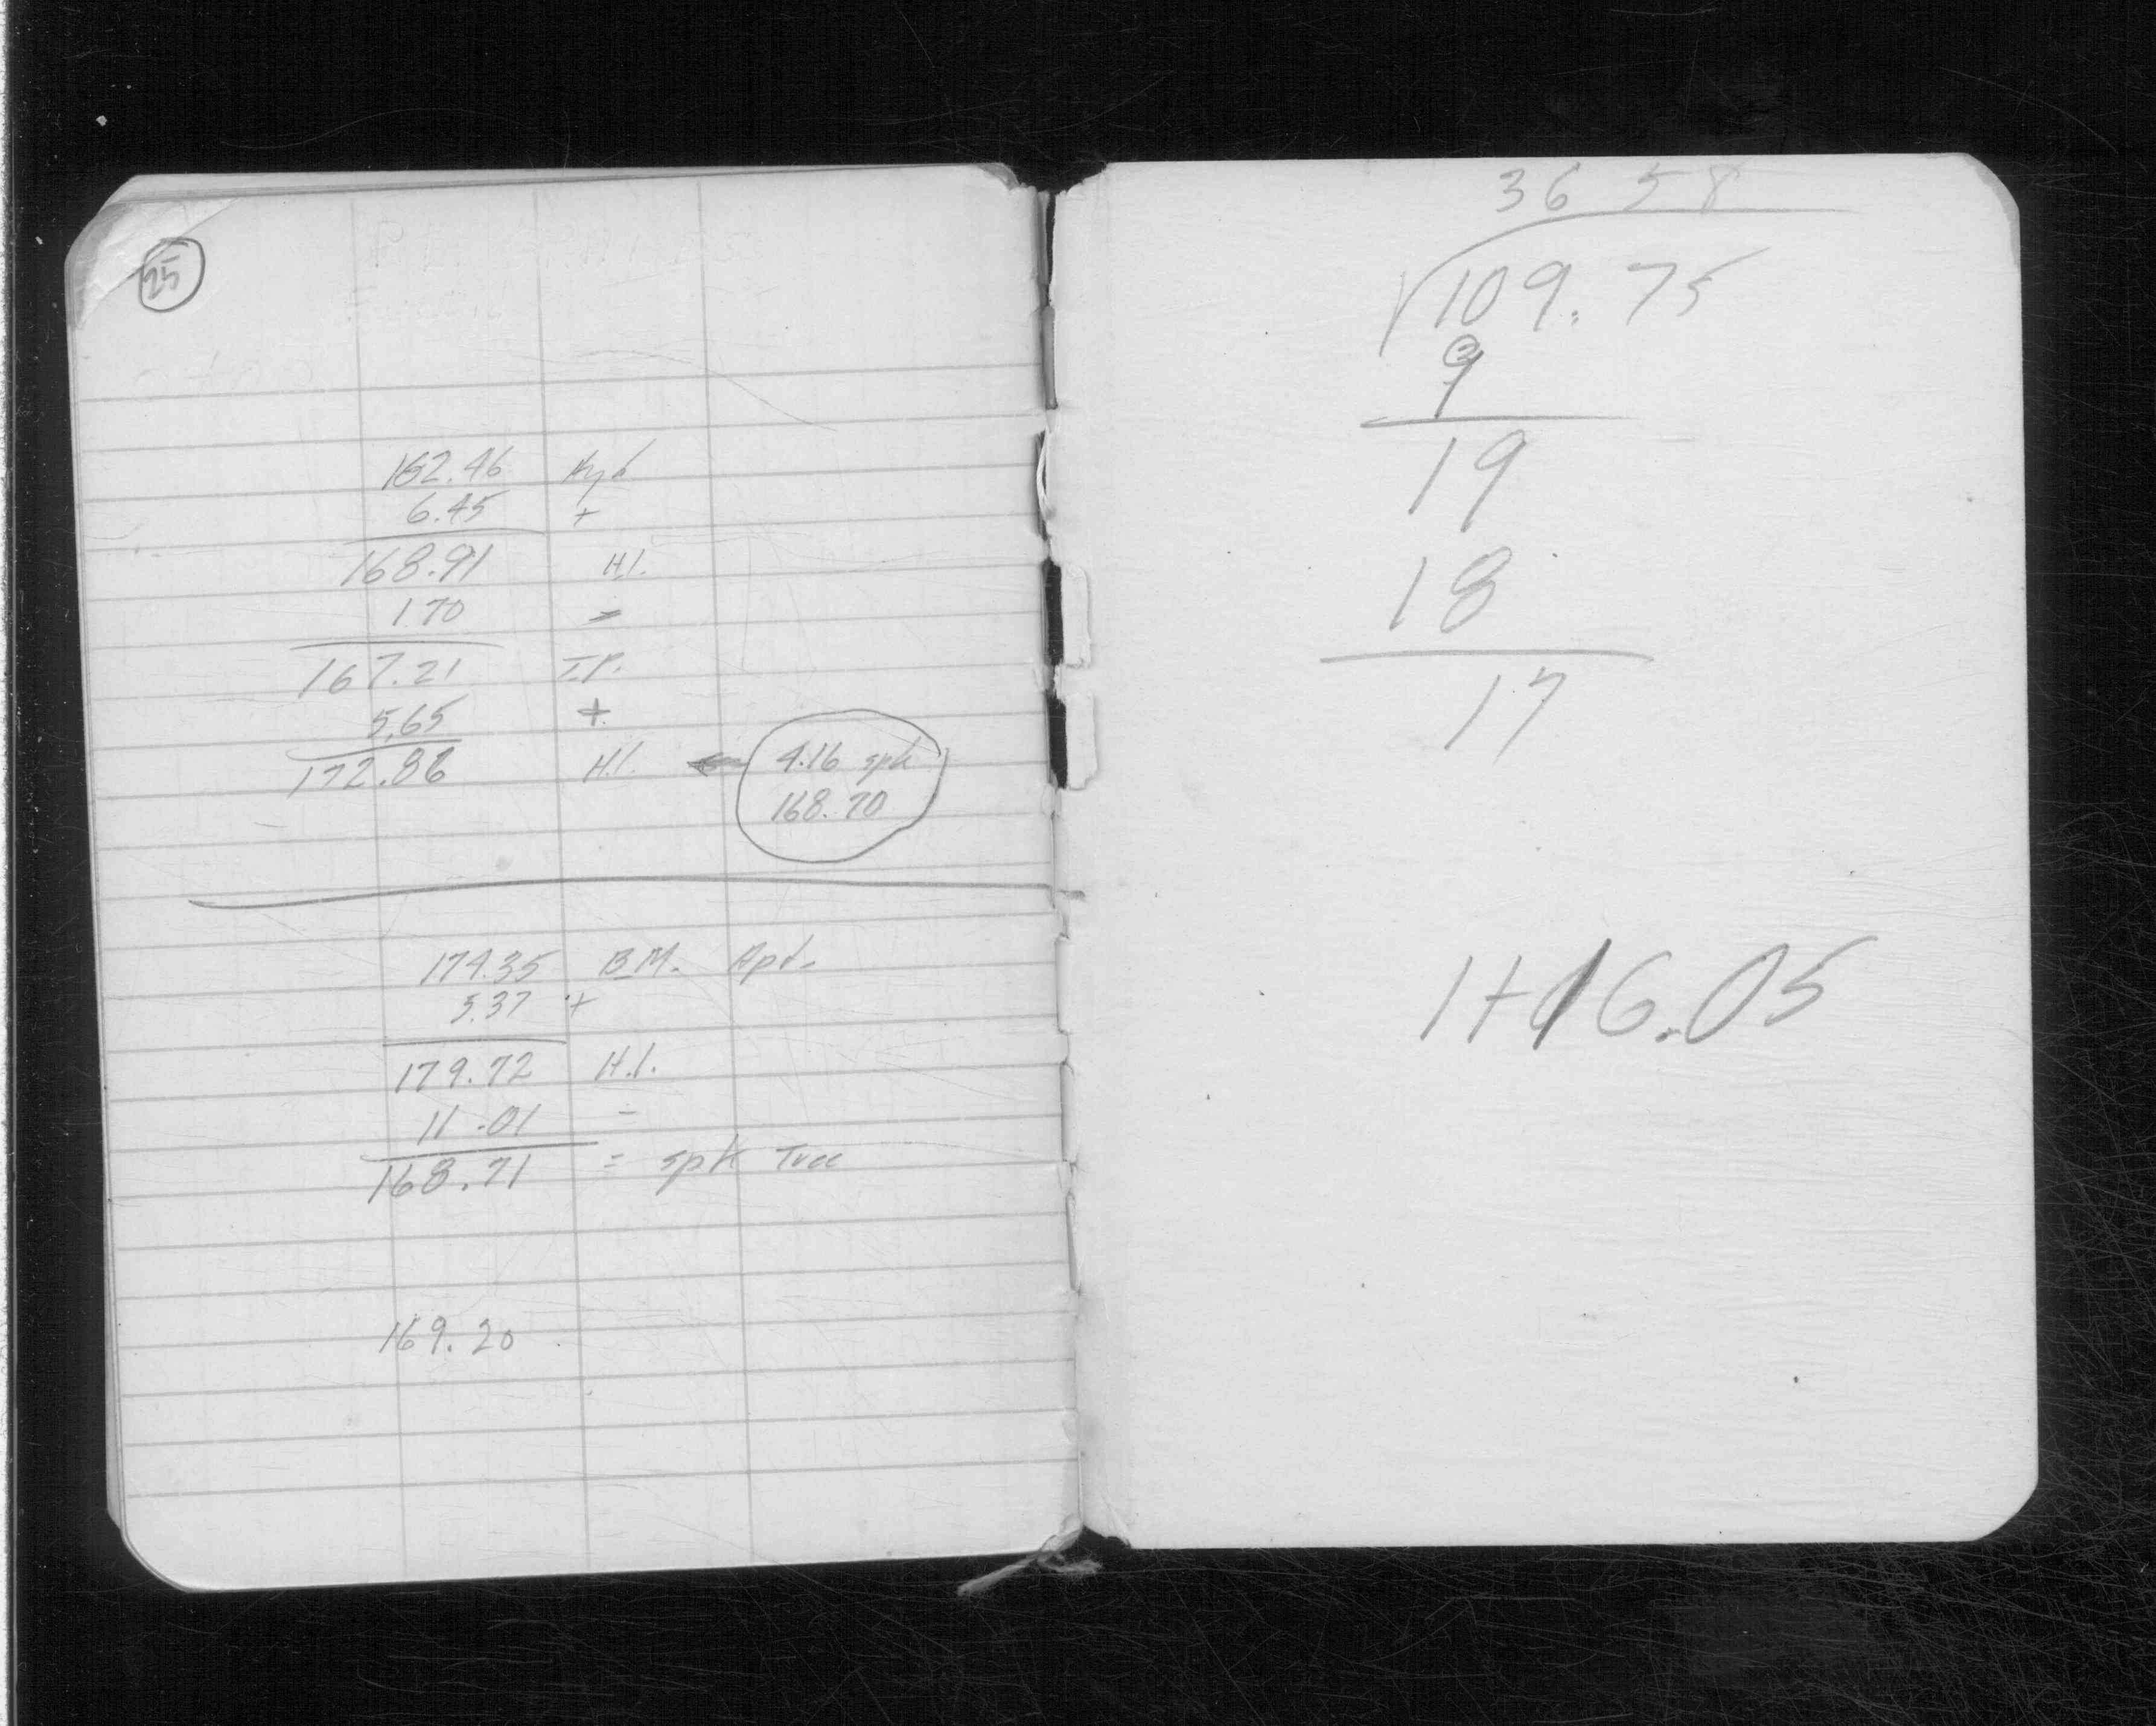 25
162.46 Hyd
6.45 +
168.91 H.I.
1.70 -
167.21 I.P.
5.65 +
172.86 H.I. ← 4.16 spk
168.70
174.35 B.M. Apt.
5.37 +
179.72 H.I.
11.01 -
168.71 = spk Tree
169.20
36 58
√109.75
9
19
18
17
1+16.05